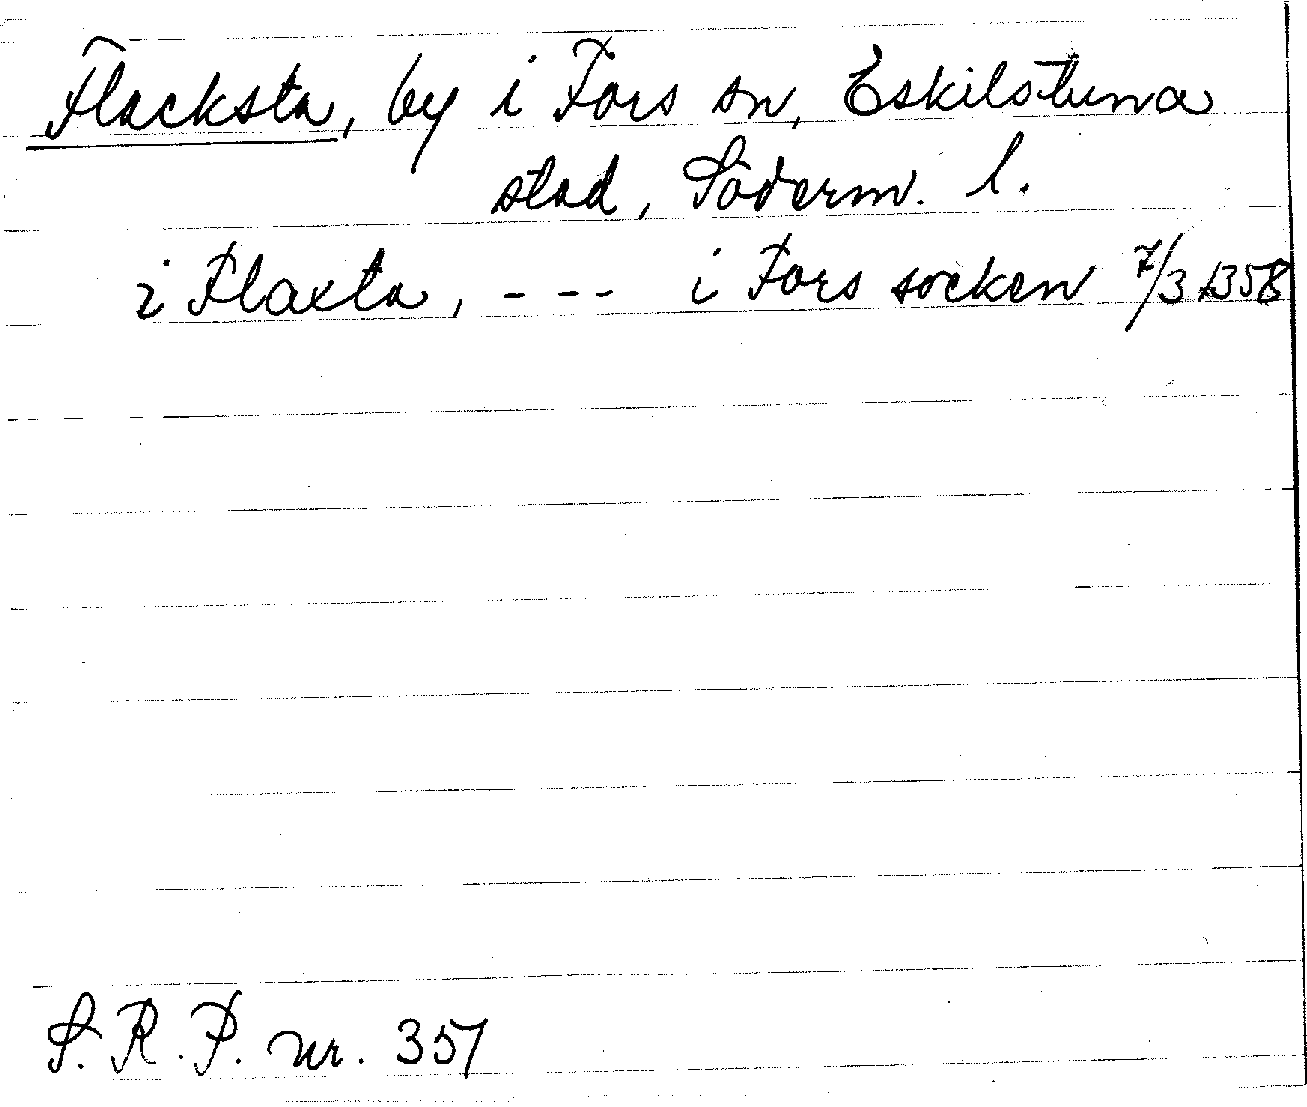 Flacksta, by i Fors sn, Eskilstuna
stad, Söderm. l.
i Flaxta, - - - i Fors socken 7/3 1358
S. R. P. nr. 357